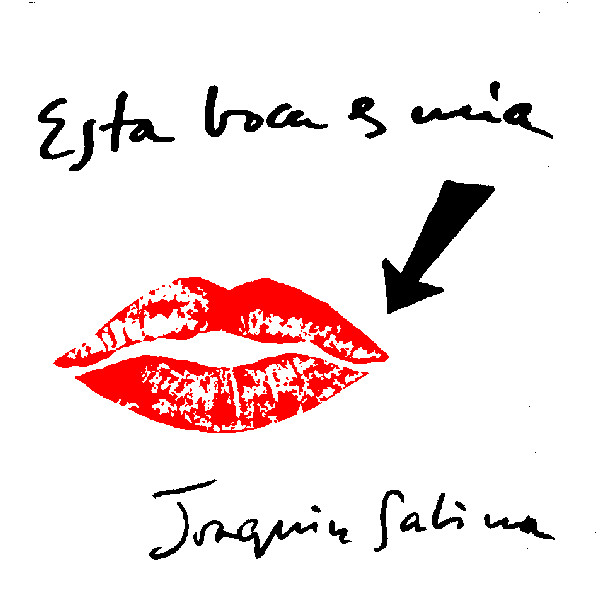 Esta boca es mía
Joaquin Sabina